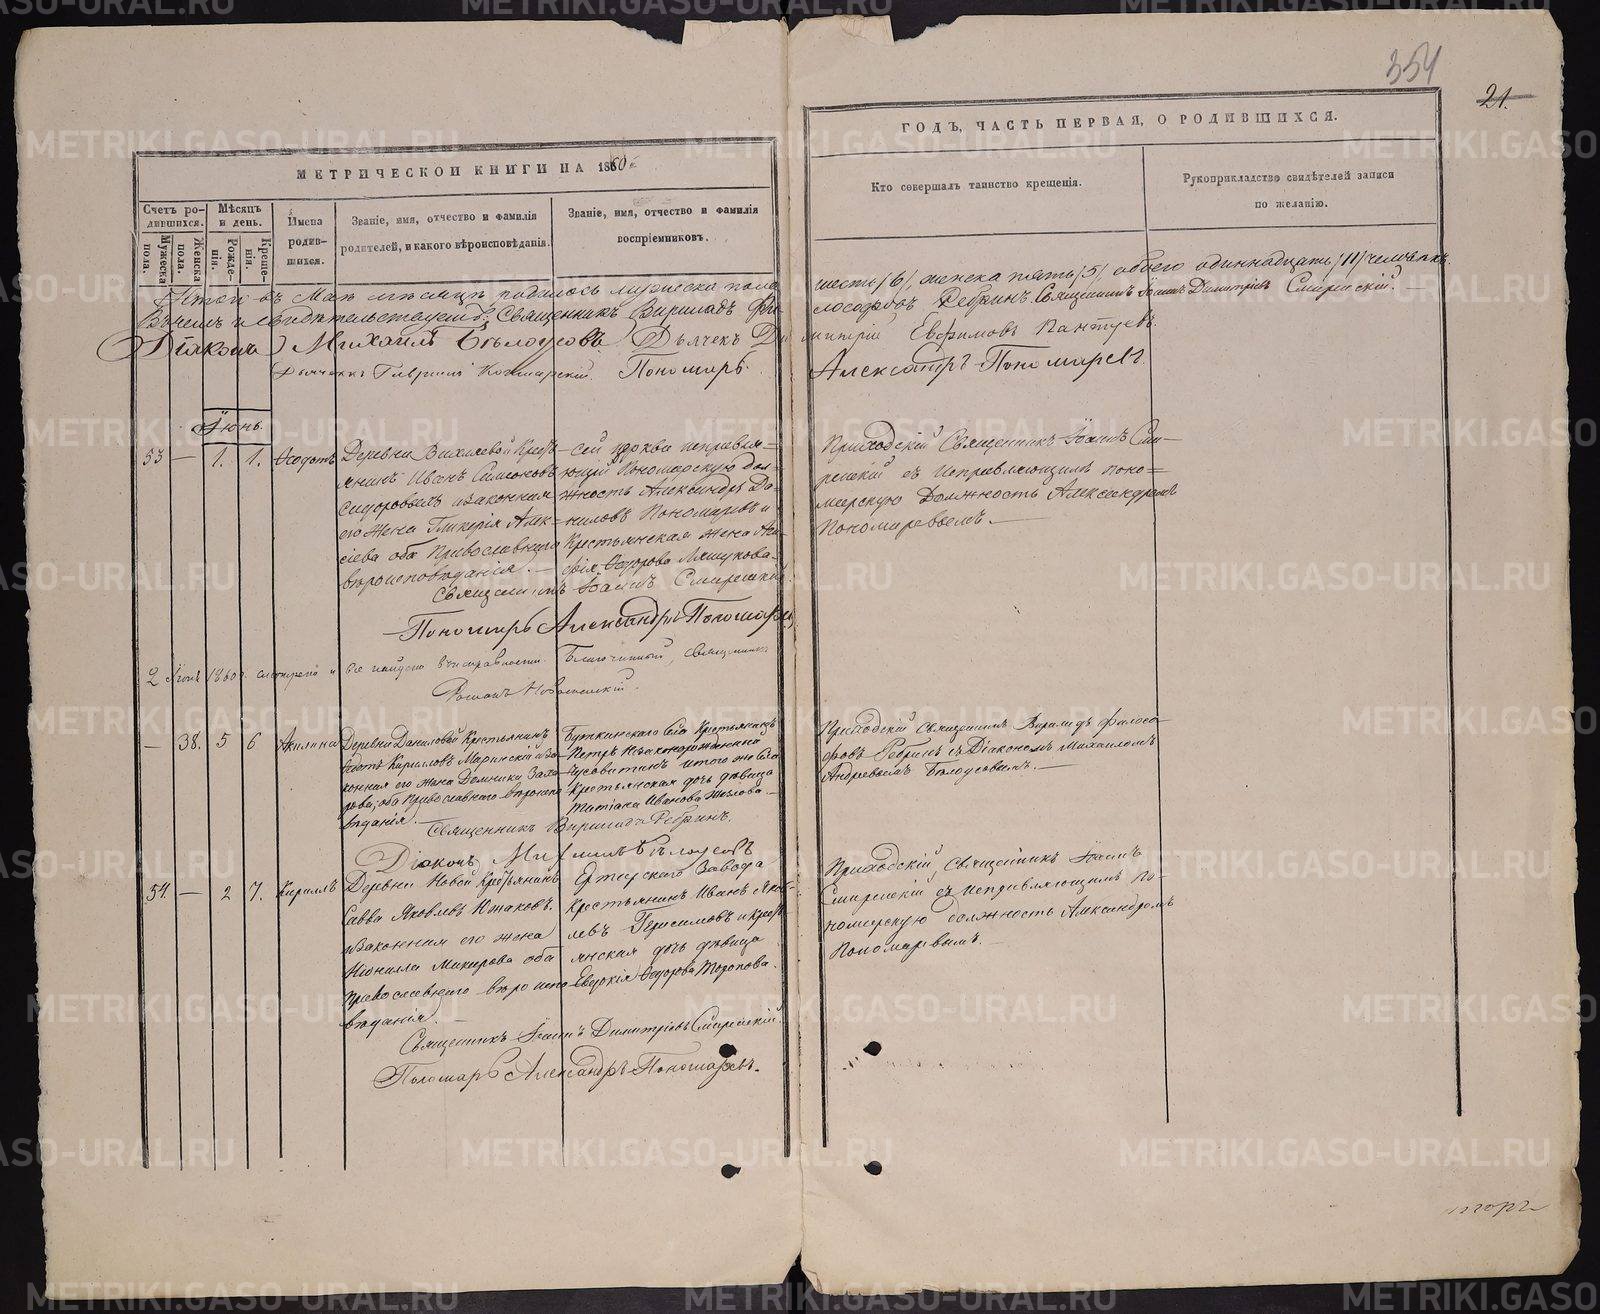 354
21.
МЕТРИЧЕСКОЙ КНИГИ НА 1860й
ГОДЪ, ЧАСТЬ ПЕРВАЯ, О РОДИВШИХСЯ.
Счетъ родившихся.
Мужеска пола.
Женска пола.
Мѣсяцъ и день.
Рожденія.
Крещенія.
Имена родившихся.
Званіе, имя, отчество и фамилія родителей, и какого вѣроисповѣданія.
Званіе, имя, отчество и фамилія воспріемниковъ.
Кто совершалъ таинство крещенія.
Рукоприкладство свидѣтелей записи по желанію.
Итого въ Маѣ мѣсяцѣ родилось мужеска пола
шесть /6/, женска пять /5/ обоего одиннадцать /11/ человѣкъ.
Въ чемъ и свидѣтельствуемъ: Священникъ Вириладъ Фи-
лософовъ Ребринъ Священникъ Іоаннъ Димитріевъ Смиренскій.
Діаконъ Михаилъ Бѣлоусовъ Дьячекъ Ди
митрій Евфимовъ Пантуевъ.
Дьячекъ Гавріилъ Пономарь
Александръ Пономаревъ
Іюнь.
53 — 1. 1. Ѳедотъ
Деревни Крестья-
янинъ Иванъ Симеоновъ
Сидоровыхъ и законная
его жена Гликерія Алек-
сіева оба Православнаго
вѣроисповѣданія. —
Сей церкви исправля-
ющій Пономарскую дол-
жность Александръ Да-
ниловъ Пономаревъ и
Крестьянская жена
Ѳедорова
Приходскій Священникъ Іоаннъ Сми-
ренскій съ исправляющимъ поно-
марскую должность Александромъ
Пономаревымъ. —
Священникъ Іоаннъ Смиренскій
Пономарь Александръ Пономаревъ
2 Іюня 1860 г. смотрено и все найдено въ исправности. Благочинный, священникъ
Романъ
— 38. 5 6 Акилина
Деревни Даниловой Крестьянинъ
Ѳедотъ Кирилловъ Маринскій и за-
конная его жена Домника Заха-
рова, оба Православнаго вѣроиспо-
вѣданія. —
Буткинскаго Села Крестьянинъ
Петръ Незаконорожденна
и того же Села
Крестьянская дочь дѣвица
Татіана Иванова
Приходскій Священникъ Вириладъ Филосо-
фовъ Ребринъ съ Діакономъ Михаиломъ
Андреевымъ Бѣлоусовымъ. —
Священникъ Вириладъ Ребринъ.
Діаконъ Михаилъ Бѣлоусовъ
54. — 2 7. Кириллъ
Деревни Новой Крестьянинъ
Савва Яковлевъ
и законная его жена
Неонилла Макарова оба
Православнаго вѣроиспо-
вѣданія. —
Завода
Крестьянинъ Иванъ Яков-
левъ Герасимовъ и крест-
янская дочь дѣвица
Евдокія Ѳедорова Торопова.
Приходскій Священникъ Іоаннъ
Смиренскій съ исправляющимъ По-
номарскую должность Александромъ
Пономаревымъ. —
Священникъ Іоаннъ Димитріевъ Смиренскій.
Пономарь Александръ Пономаревъ.
METRIKI.GASO-URAL.RU